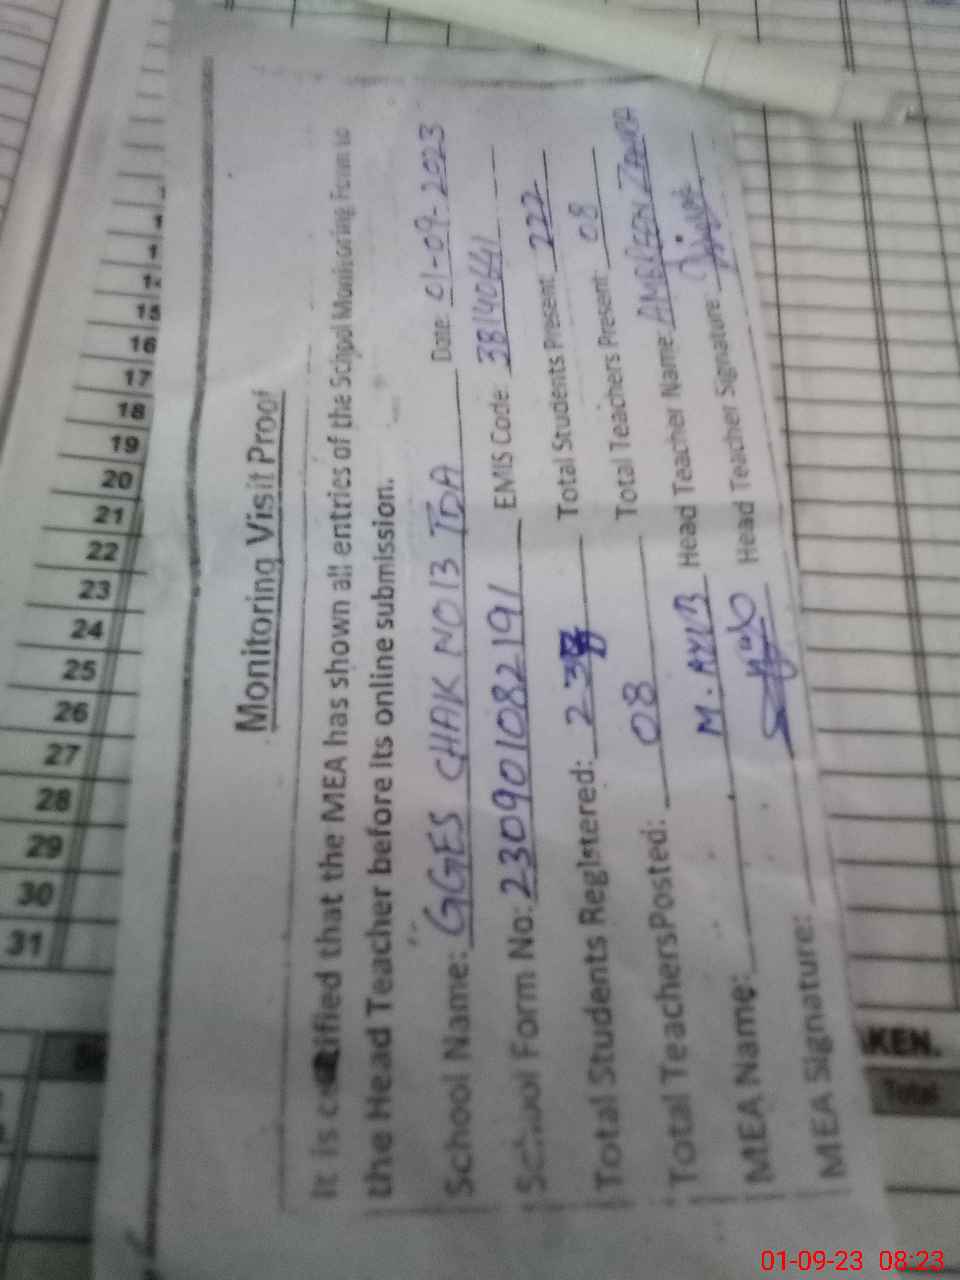 Monitoring Visit Proof
It is certified that the MEA has shown all entries of the School Monitoring Form to
the Head Teacher before its online submission.
School Name: GGES CHAK NO 13 TDA Date: 01-09-2023
School Form No: 230901082191 EMIS Code: 38140641
Total Students Registered: Total Students Present: 222
Total Teachers Posted: 08 Total Teachers Present: 08
MEA Name: M. AYUB Head Teacher Name: ZAHRA
MEA Signature: Head Teacher Signature:
15
16
17
18
19
20
21
22
23
24
25
26
27
28
29
30
31
KEN.
Total
01-09-23 08:23